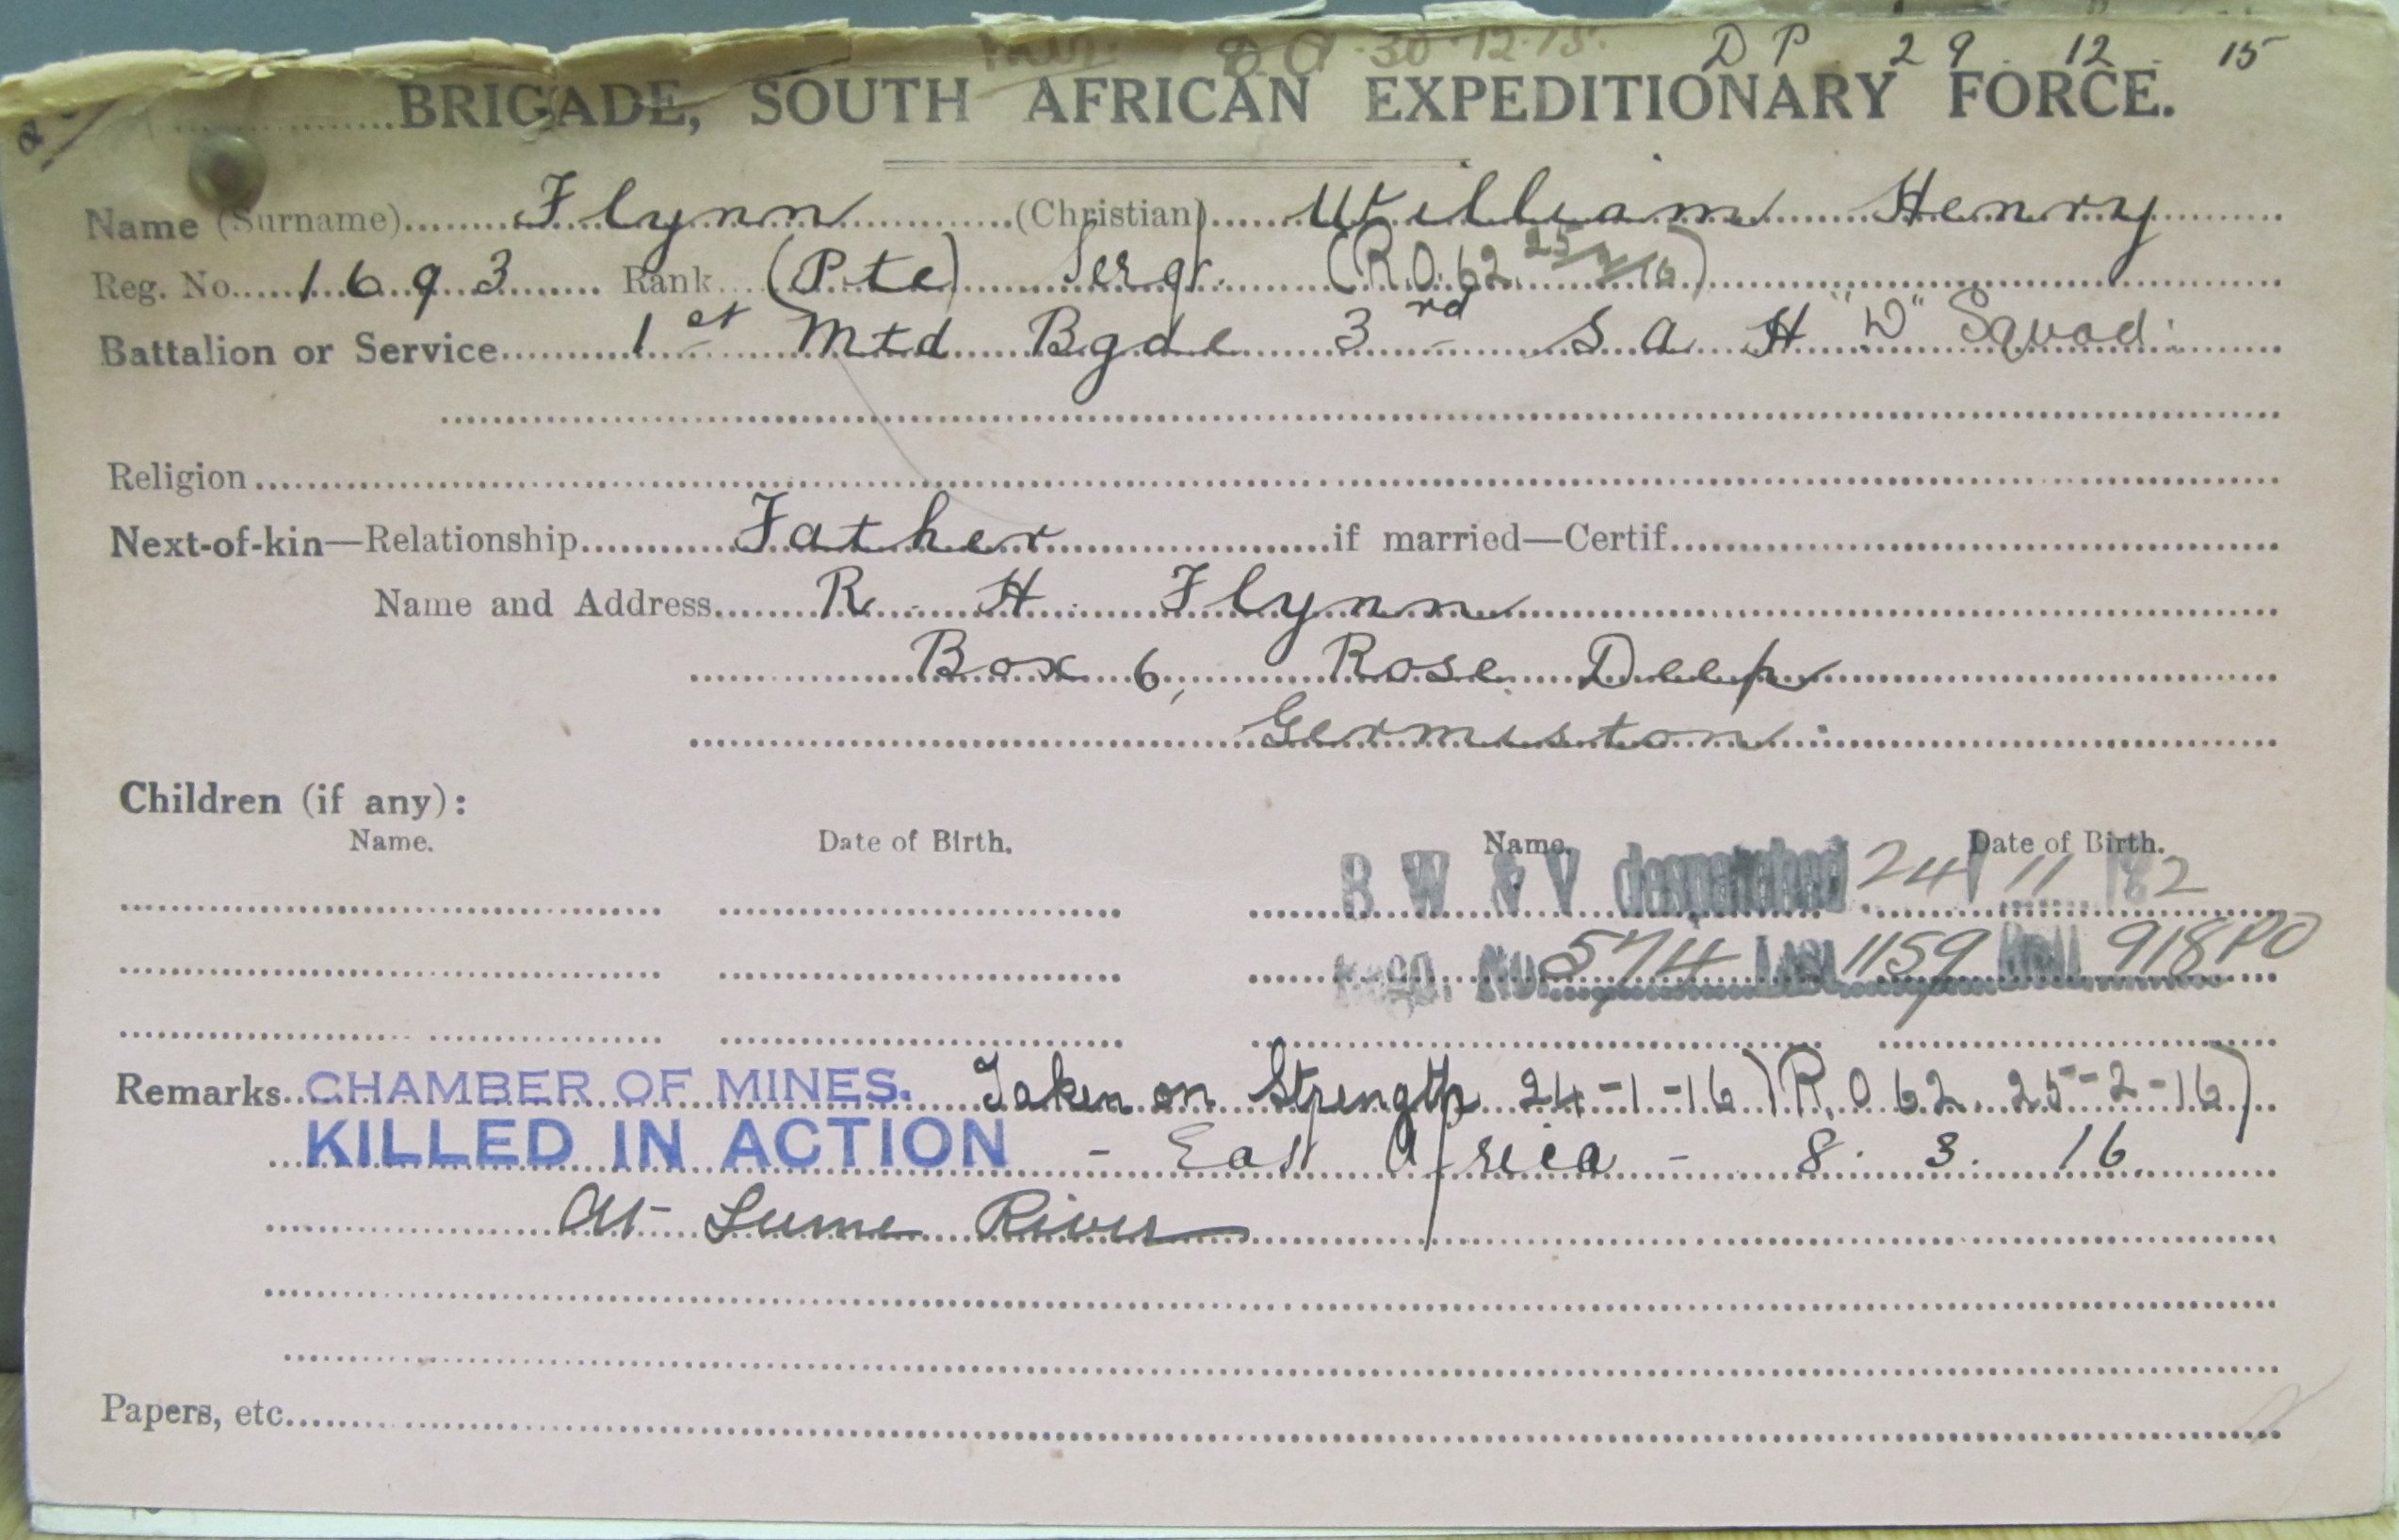 8 A 30.12.15. D P 29. 12. 15
BRIGADE, SOUTH AFRICAN EXPEDITIONARY FORCE.
Name (Surname) Flynn (Christian) William Henry
Reg. No. 1693 Rank (Pte) Sergt. (R.O. 62 25/2/16)
Battalion or Service 1st Mtd Bgde 3rd S A H "D" Squad:
Religion
Next-of-kin—Relationship Father if married—Certif.
Name and Address R. H. Flynn
Box 6, Rose Deep
Germiston
Children (if any):
Name. Date of Birth. Name. Date of Birth.
B W & V despatched 24 11
No. 574 1159 918 PO
Remarks CHAMBER OF MINES. Taken on Strength 24-1-16) (R.O 62 25-2-16)
KILLED IN ACTION - East Africa - 8. 3. 16.
At Lume River
Papers, etc.